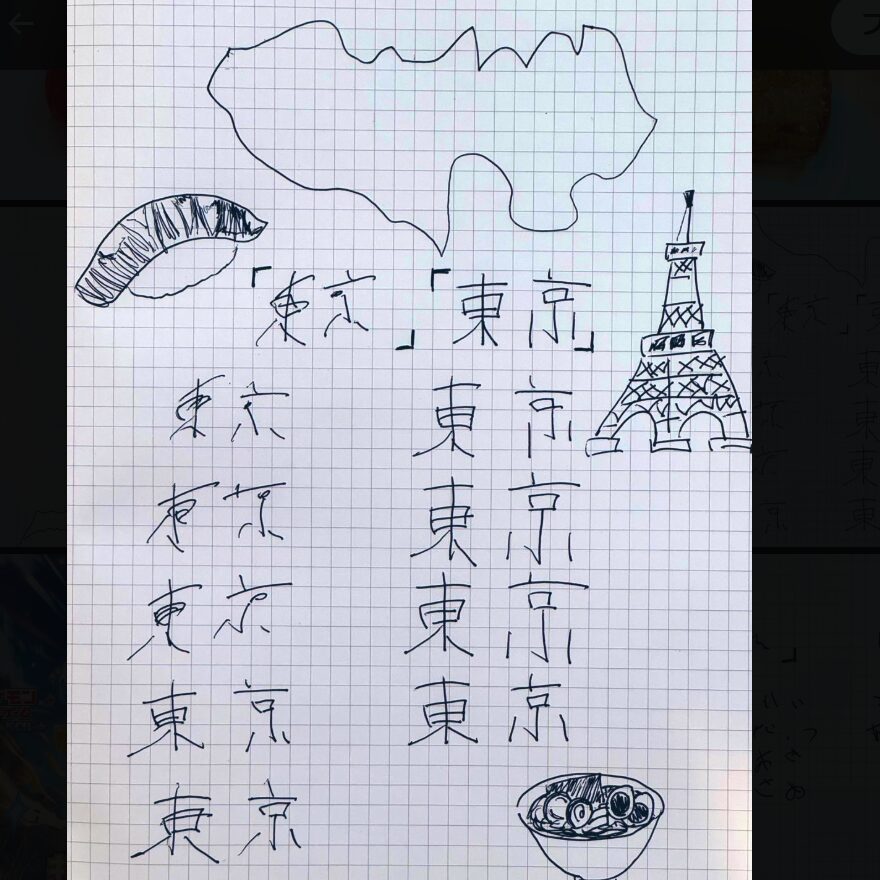 「東京」「東京」
東京 東京
東京 東京
東京 東京
東京 東京
東京